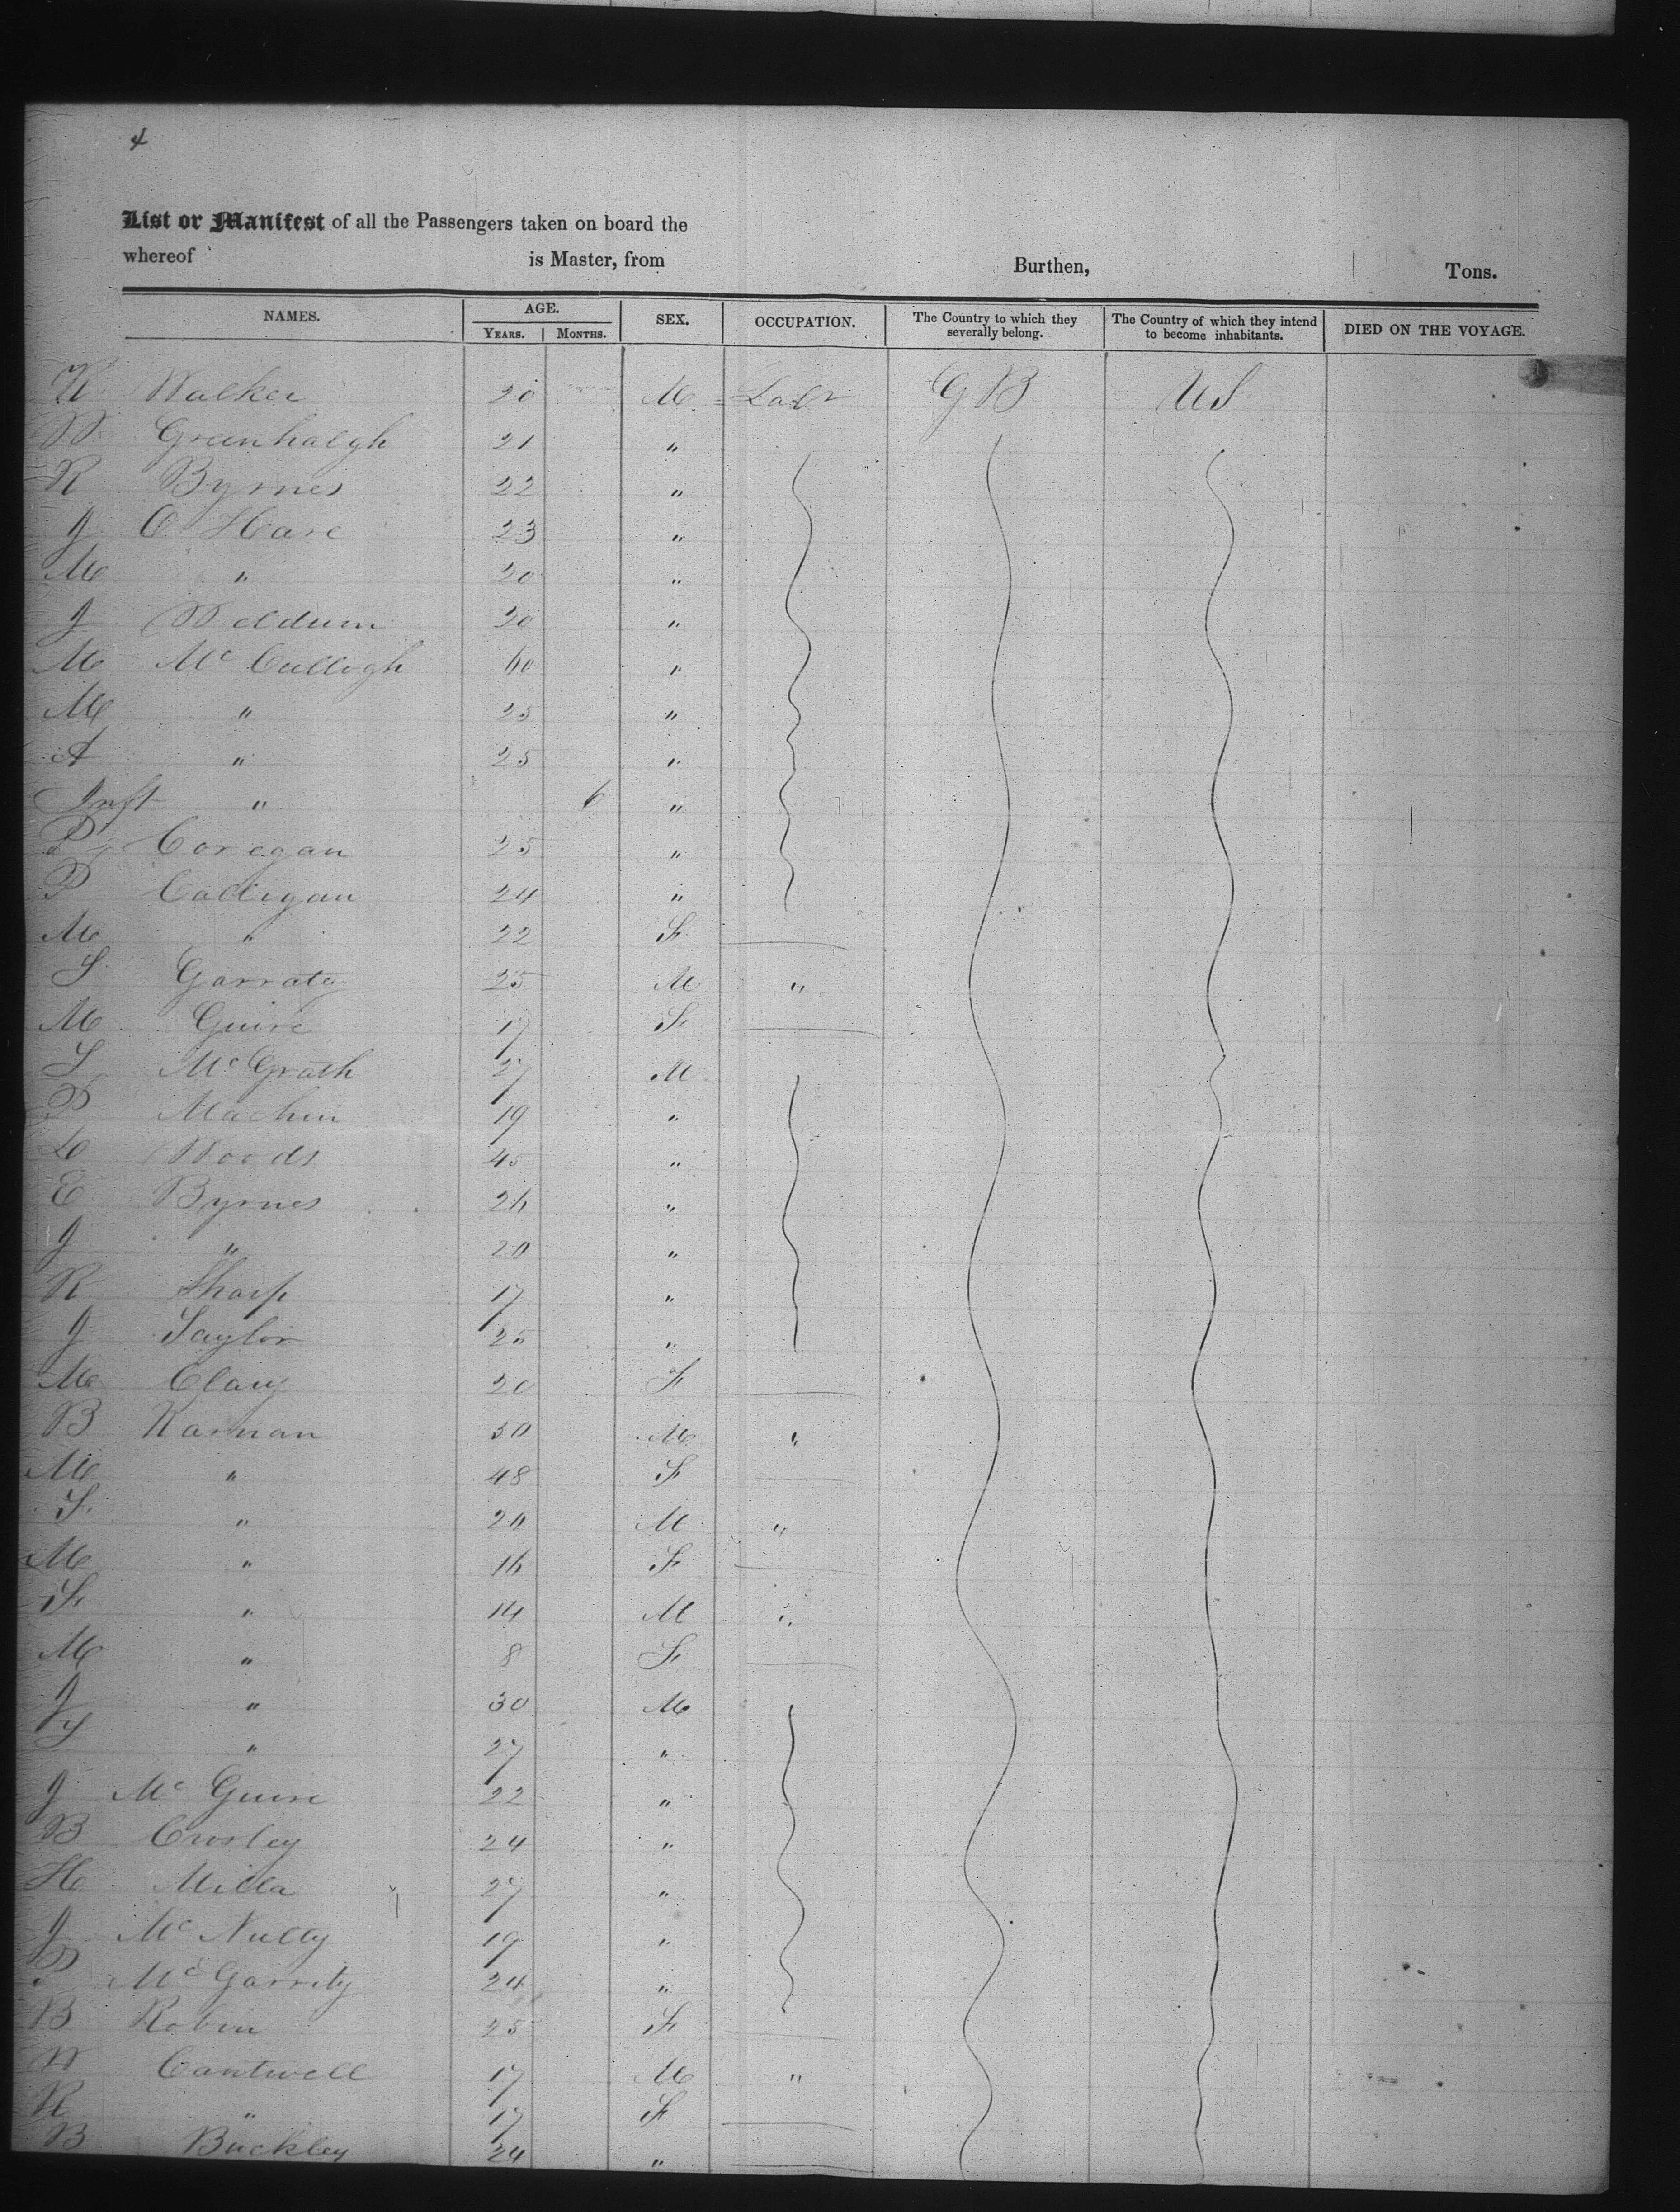 4
List or Manifest of all the Passengers taken on board the
whereof is Master, from Burthen, Tons.
NAMES. AGE. SEX. OCCUPATION. The Country to which they severally belong. The Country of which they intend to become inhabitants. DIED ON THE VOYAGE.
YEARS. MONTHS.
K Walker 20 M Labr GB US
W Greenhalgh 21 "
R Byrnes 22 "
J O Hare 23 "
M " 20 "
J Weldum 20 "
M McCullogh 40 "
M " 25 "
A " 25 "
Inft " 6 "
P Coregan 25 "
P Calligan 24 "
M " 22 F
S Garraty 25 M "
M Guire 17 F
S McGrath 27 M
P Machin 19 "
D Woods 45 "
E Byrnes 26 "
J " 20 "
R Sharp 17 "
J Taylor 25 "
M Clany 20 F
B Karnan 50 M "
M " 48 F
F " 20 M "
M " 16 F
F " 14 M "
M " 8 F
J " 30 M
S " 27 "
J McGuire 22 "
B Crosley 24 "
H Milla 27 "
J McNulty 19 "
P McGarrity 24 "
B Robin 25 F
W Cantwell 17 M "
K " 17 F
B Buckley 24 "